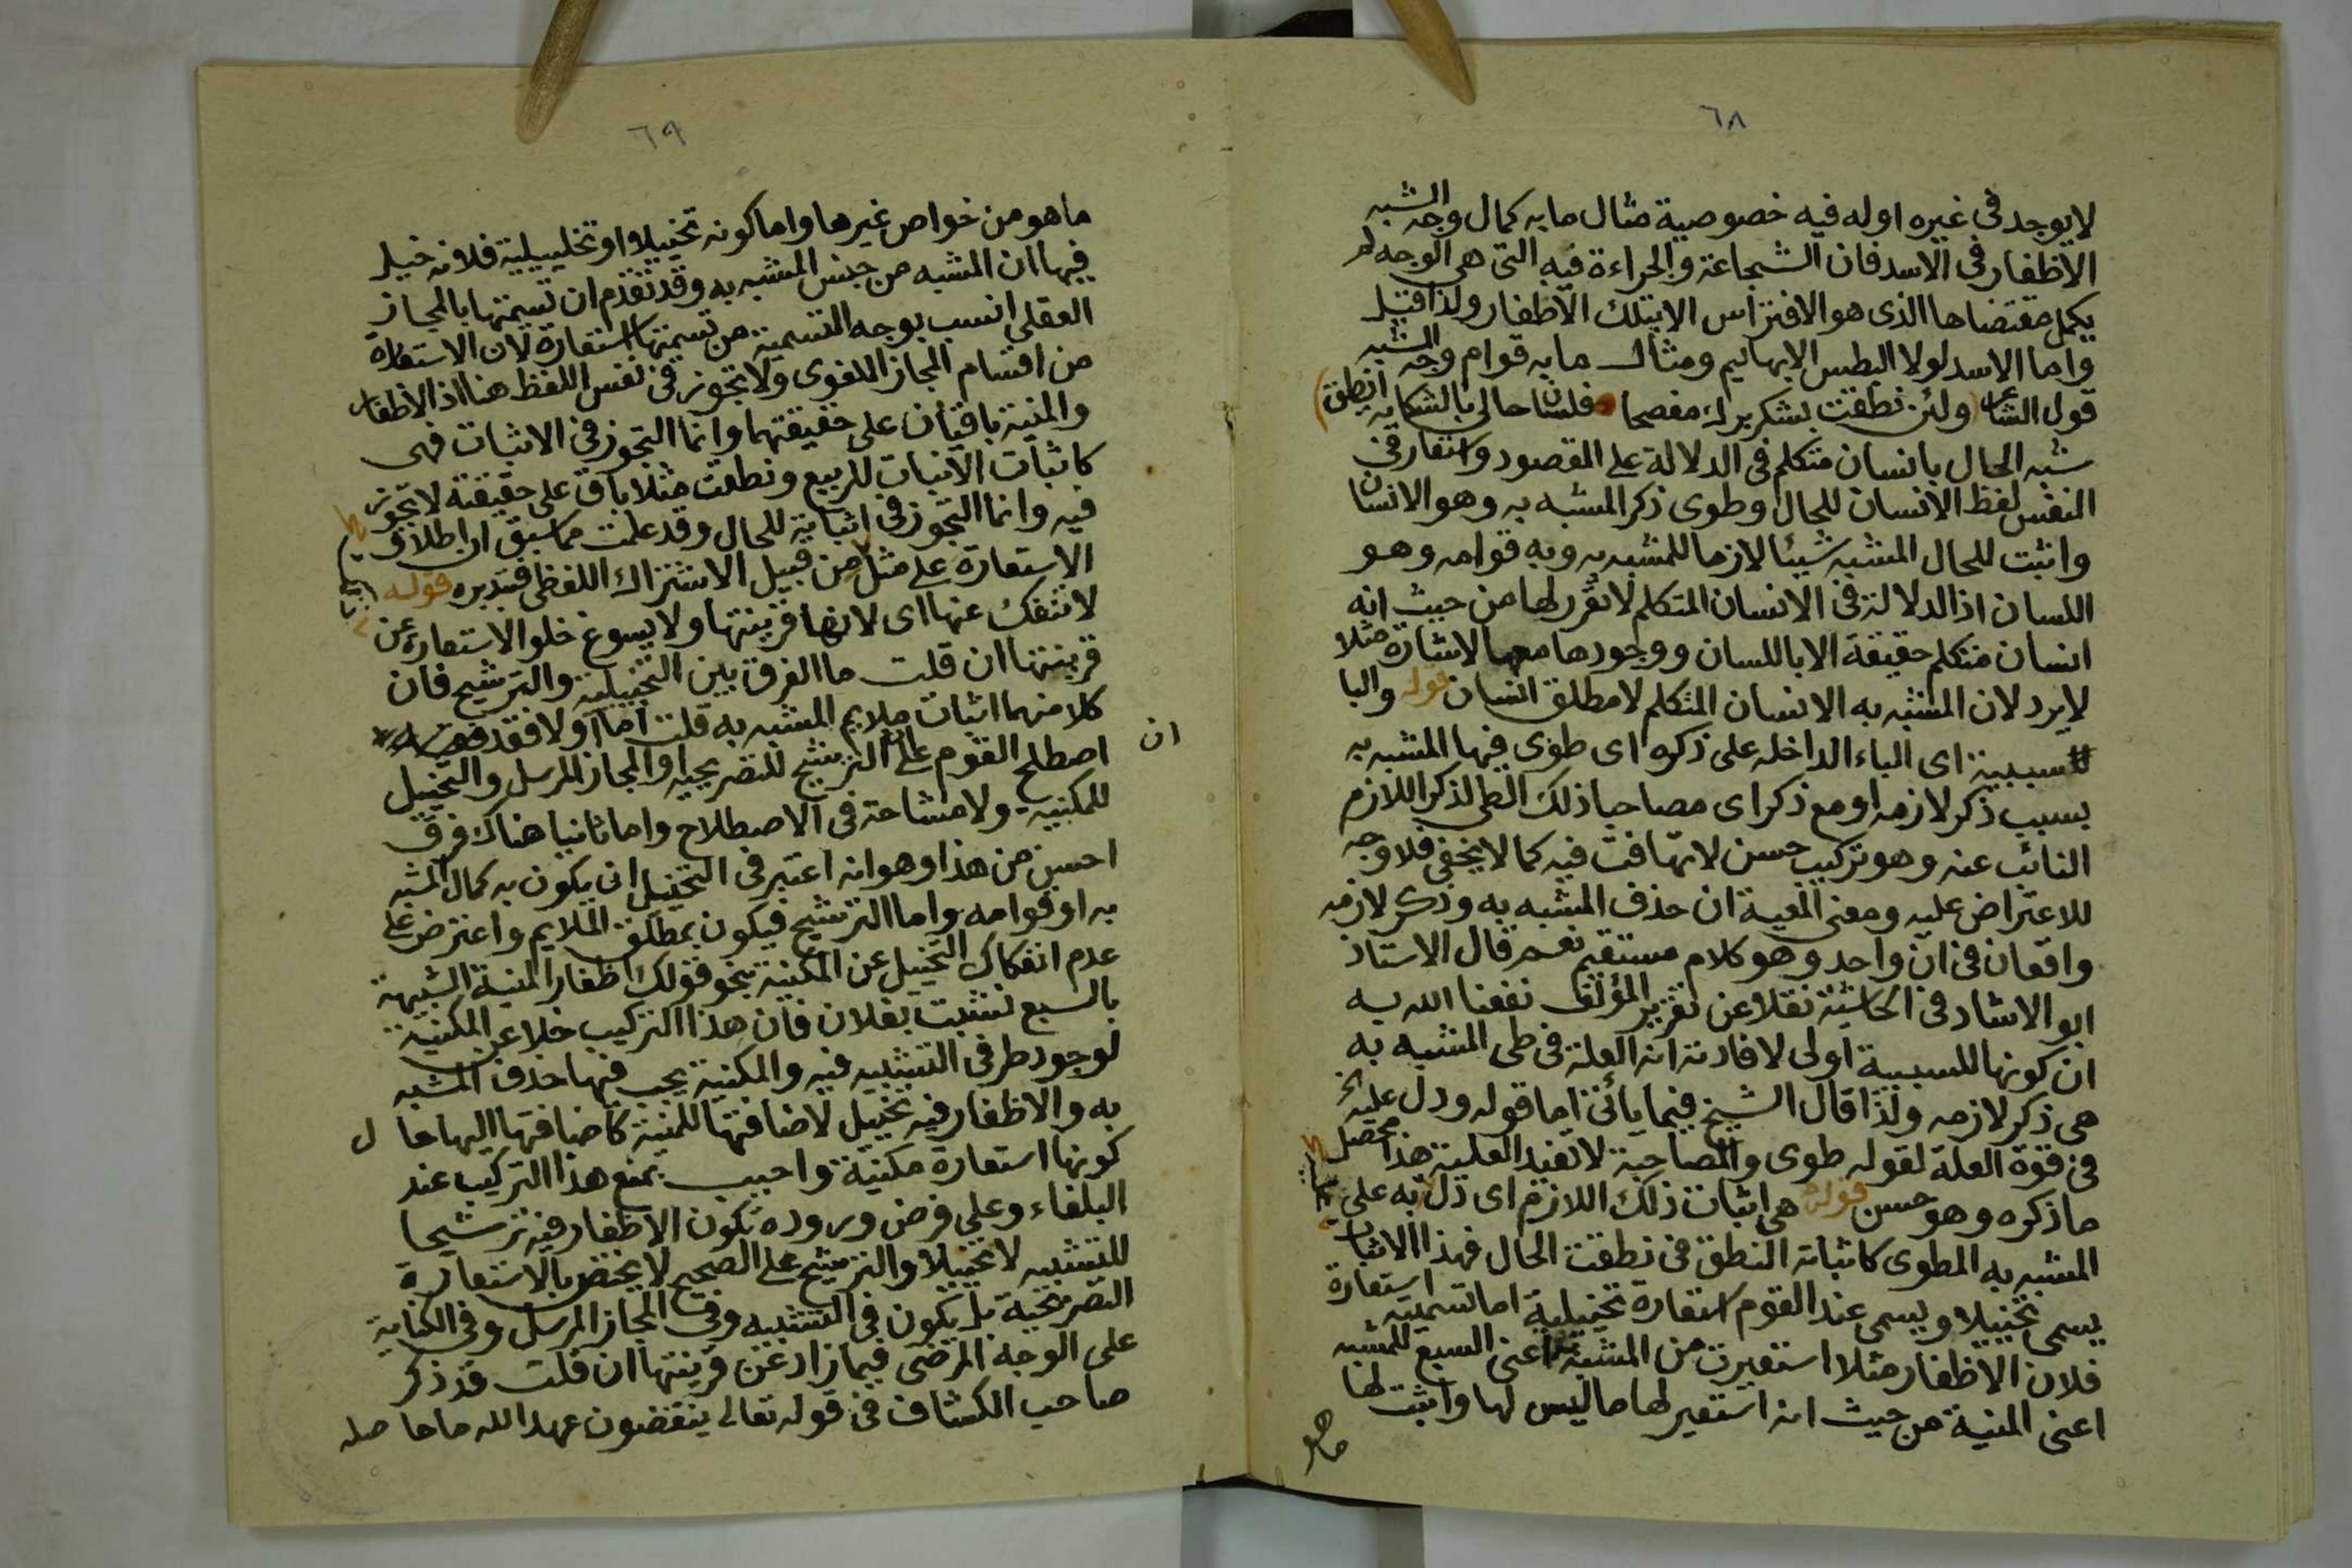 ٦٨
لا يوجد فى غيره اوله فيه خصوصية مثال ما به كمال وجه الشبه
الاظفار فى الاسد فان الشجاعة والجراءة فيه التى هى الوجه لم
يكمل مقتضاها الذى هو الافتراس الا بتلك الاظفار ولذا قيل
وما الاسد لولا البطش الا بهايم ومثال ما به قوام وجه الشبه
قول الشاعر ولئن نطقت بشكر برك مفصحا فلسان حالى بالشكاية انطق
شبه الحال بانسان متكلم فى الدلالة على المقصود واستعار فى
النفس لفظ الانسان للحال وطوى ذكر المشبه به وهو الانسان
واثبت للحال المشبه شيئا لازما للمشبه به وبه قوامه وهو
اللسان اذ الدلالة فى الانسان المتكلم لا تقرر لها من حيث انه
انسان متكلم حقيقة الا باللسان ووجودها معها لاشارة مثلا
لا يرد لان المشبه به الانسان المتكلم لا مطلق انسان قوله والبا
سببية اى الباء الداخله على ذكره اى طوى فيها المشبه به
بسبب ذكر لازمه او مع ذكر اى مصاحبا ذلك الطى لذكر اللازم
النائب عنه وهو تركيب حسن لا تهافت فيه كما لا يخفى فلا وجه
للاعتراض عليه ومعنى المعية ان حذف المشبه به وذكر لازمه
واقعان فى ان واحد وهو كلام مستقيم نعم قال الاستاذ
ابو الارشاد فى الحاشية نقلا عن تقرير المؤلف نفعنا الله به
ان كونها للسببية اولى لافادته انه العلة فى طى المشبه به
هى ذكر لازمه ولذا قال الشيخ فيما يأتى اما قوله ودل عليه الخ
فى قوة العلة لقوله طوى والمصاحبة لا تفيد العلية هذا محصل
ما ذكره وهو حسن قوله هى اثبات ذلك اللازم اى دل به على
المشبه به المطوى كاثبات النطق فى نطقت الحال فهذا الاثبات
يسمى تخييلا ويسمى عند القوم استعارة تخييلية اما تسميته استعارة
فلان الاظفار مثلا استعيرت من المشبه به اعنى السبع للمشبه
اعنى المنية من حيث انه استعير لها ما ليس لها واثبت لها
ما هو
٦٩
ما هو من خواص غيرها واما كونه تخييلا او تخييلية فلانه خيل
فيها ان المشبه من جنس المشبه به وقد تقدم ان تسيمتها بالمجاز
العقلى انسب بوجه التسمية من تسيمتها استعارة لان الاستعارة
من اقسام المجاز اللغوى ولا تجوز فى نفس اللفظ هنا اذ الاظفار
والمنية باقيان على حقيقتهما وانما التجوز فى الاثبات فهى
كاثبات الانبات للربيع ونطقت مثلا باق على حقيقتة لا تجوز
فيه وانما التجوز فى اثباته للحال وقد علمت مما سبق ان اطلاق
الاستعارة على مثل من قبيل الاشتراك اللفظى فتدبره قوله
لا تنفك عنها اى لانها قرينتها ولا يسوغ خلو الاستعارة عن
قرينتها ان قلت ما الفرق بين التخييلية والترشيح فان
كلا منهما اثبات ملايم المشبه به قلت اما اولا فقد
ان
اصطلح القوم على ان الترشيح للتصريحيه او المجاز المرسل والتخييل
للمكنية ولا مشاحة فى الاصطلاح واما ثانيا هناك فرق
احسن من هذا وهو انه اعتبر فى التخييل ان يكون به كمال المشبه
به او قوامه واما الترشيح فيكون بمطلق الملايم واعترض على
عدم انفكاك التخييل عن المكنية بنحو قولك اظفار المنية الشبيهة
بالسبع نشبت بفلان فان هذا التركيب خلا عن المكنية
لوجود طرفى التشبيه فيه والمكنية يجب فيها حذف المشبه
به والاظفار فيه تخييل لاضافتها للمنية كاضافتها اليها حا ل
كونها استعارة مكنية واجيب بمنع هذا التركيب عند
البلغاء وعلى فرض وروده تكون الاظفار فيه ترشيحا
للتشبيه لا تخييلا والترشيح على الصحيح لا يختص بالاستعارة
التصريحية بل يكون فى التشبيه وفى المجاز المرسل وفى الكناية
على الوجه المرضى فيما زاد عن قرينتها ان قلت قد ذكر
صاحب الكشاف فى قوله تعالى ينقضون عهد الله ما حاصله